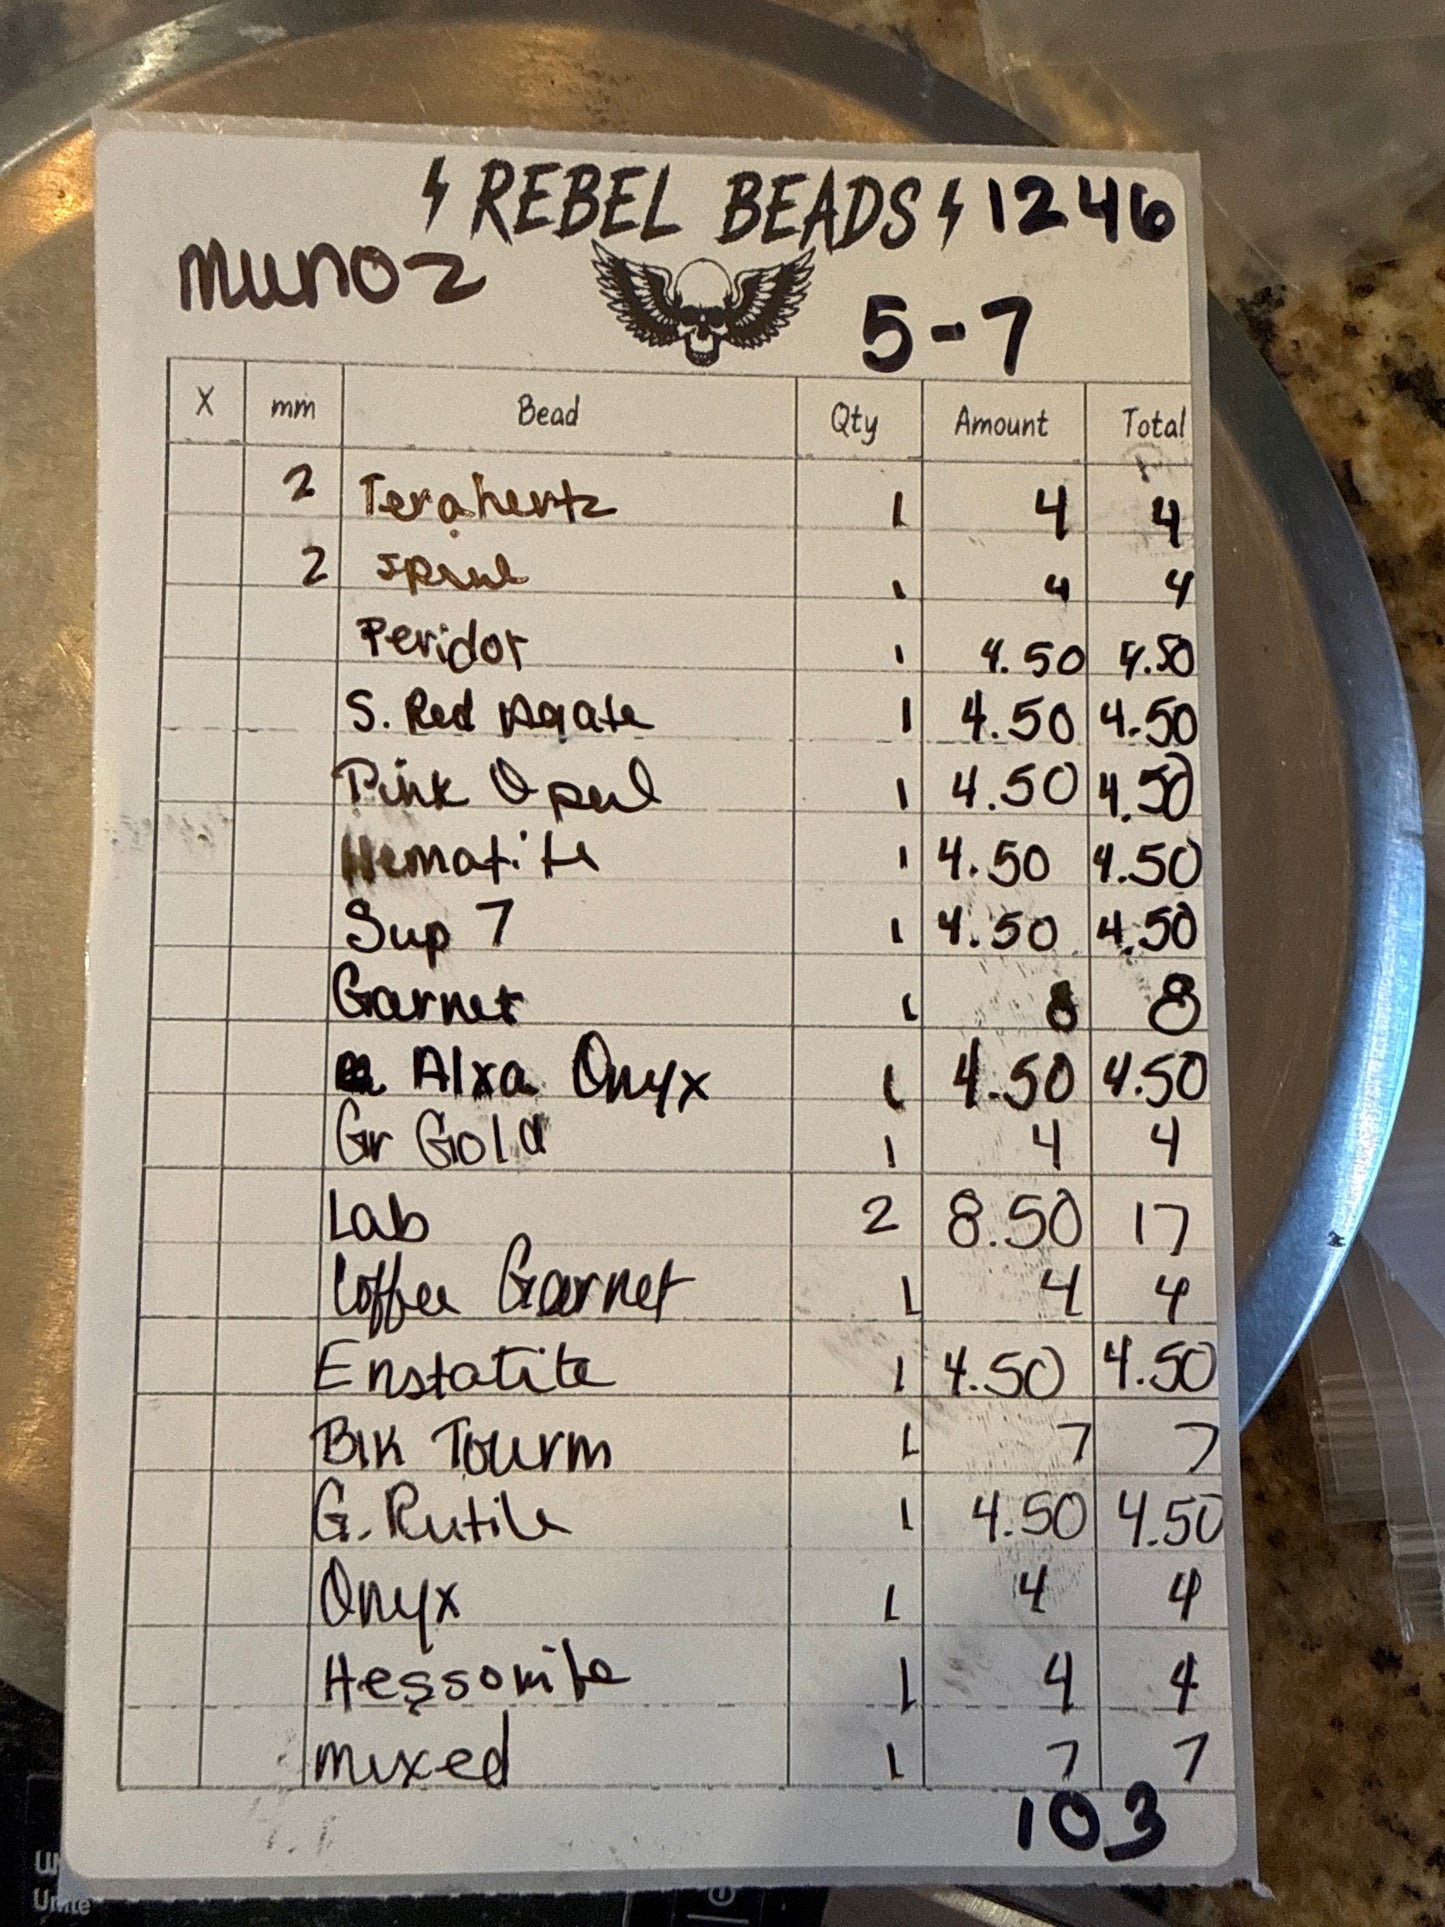 REBEL BEADS 1246
Munoz
5-7
X mm Bead Qty Amount Total
2 Terahertz 1 4 4
2 1 4 4
Peridot 1 4.50 4.50
S. Red Agate 1 4.50 4.50
Pink Opal 1 4.50 4.50
Hematite 1 4.50 4.50
Sup 7 1 4.50 4.50
Garnet 1 8 8
Alxa Onyx 1 4.50 4.50
Gr Gold 1 4 4
Lab 2 8.50 17
Coffee Garnet 1 4 4
Enstatite 1 4.50 4.50
Blk Tourm 1 7 7
G. Rutile 1 4.50 4.50
Onyx 1 4 4
Hessonite 1 4 4
mixed 1 7 7
103